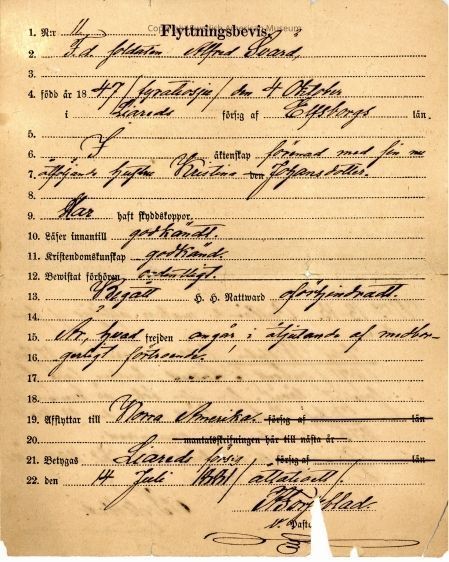 Flyttningsbevis
1. N:r 11.
2. F.d. soldaten Alfred Svärd,
3.
4. född år 1847 (fyratiosju) den 4 Oktober
i Liareds förs:g af Elfsborgs län.
5.
6. I äktenskap förenad med sin med
7. åtföljande hustru Kristina Johansdotter.
8.
9. Har haft skyddskoppor.
10. Läser innantill godkändt.
11. Kristendomskunskap godkänd.
12. Bewistat förhören ordentligt.
13. Begått H. H. Nattward oförhindradt.
14.
15. Är, hvad frejden angår, i åtjutande af medbor-
16. gerligt förtroende.
17.
18.
19. Afflyttar till Norra Amerika. förs:g af län
20. mantalsskrifningen här till nästa år
21. Betygas Liareds förs:g förs:g af län
22. den 14 Juli 1881 (åttatioett).